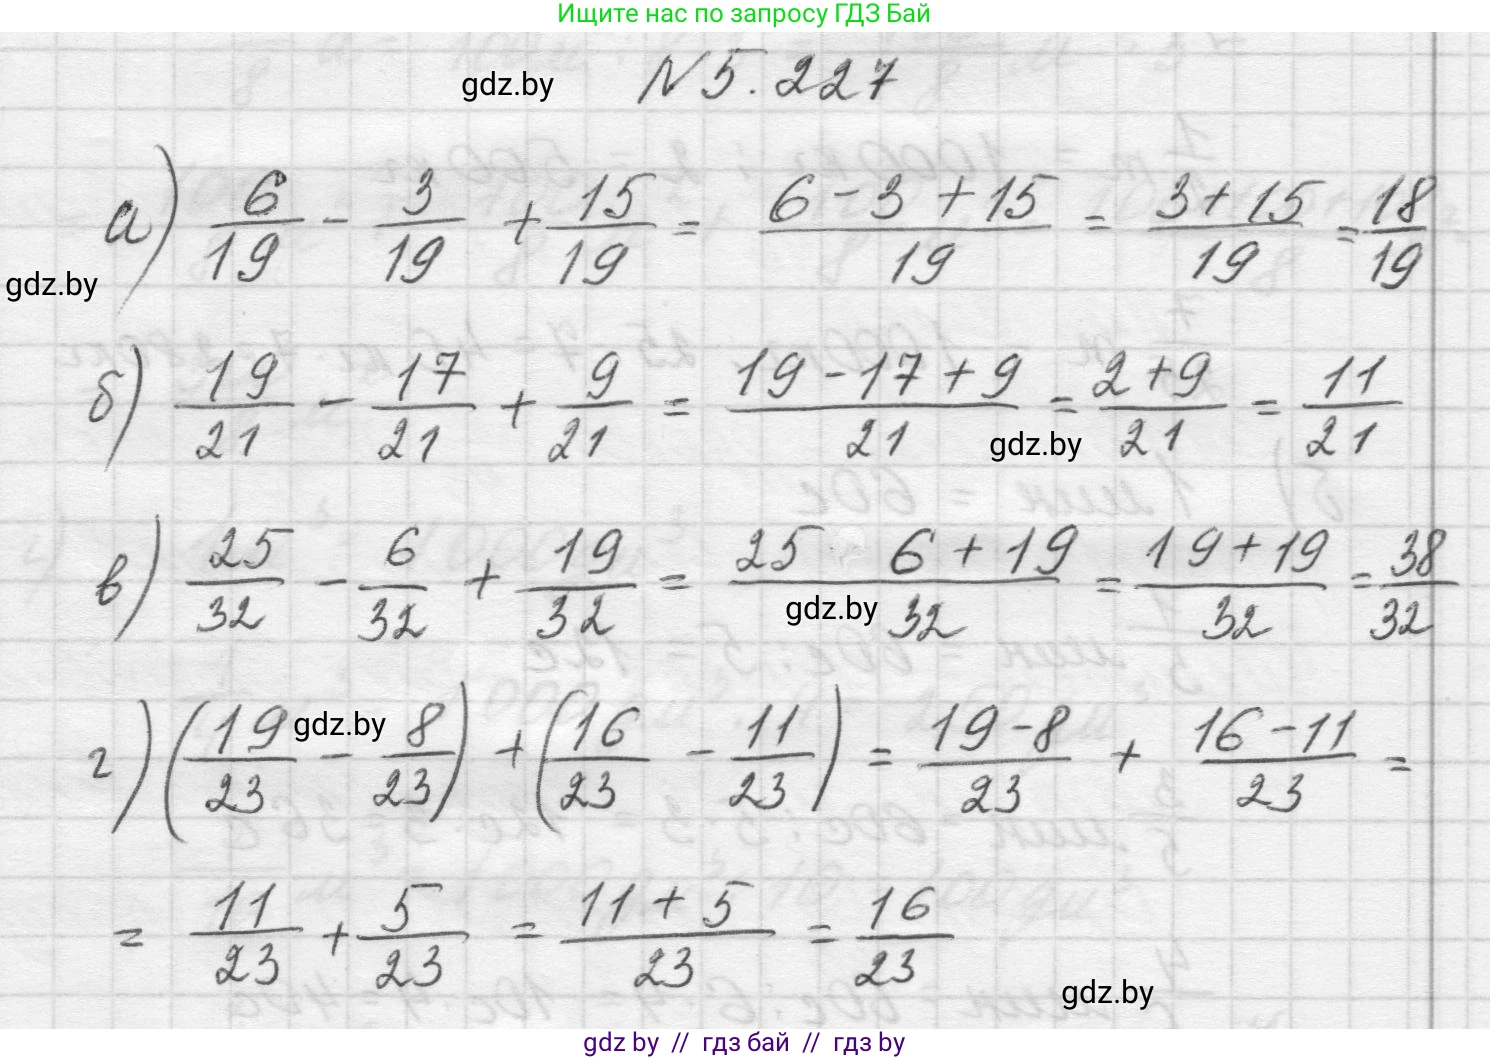 Ищите нас по запросу ГДЗ Бай
gdz.by
N 5.227
а) 6/19 - 3/19 + 15/19 = (6 - 3 + 15)/19 = (3 + 15)/19 = 18/19
gdz.by
б) 19/21 - 17/21 + 9/21 = (19 - 17 + 9)/21 = (2 + 9)/21 = 11/21
gdz.by
в) 25/32 - 6/32 + 19/32 = (25 6 + 19)/32 = (19 + 19)/32 = 38/32
gdz.by
г) (19/23 - 8/23) + (16/23 - 11/23) = (19 - 8)/23 + (16 - 11)/23 =
gdz.by
= 11/23 + 5/23 = (11 + 5)/23 = 16/23
gdz.by
gdz by // гдз бай // гдз by